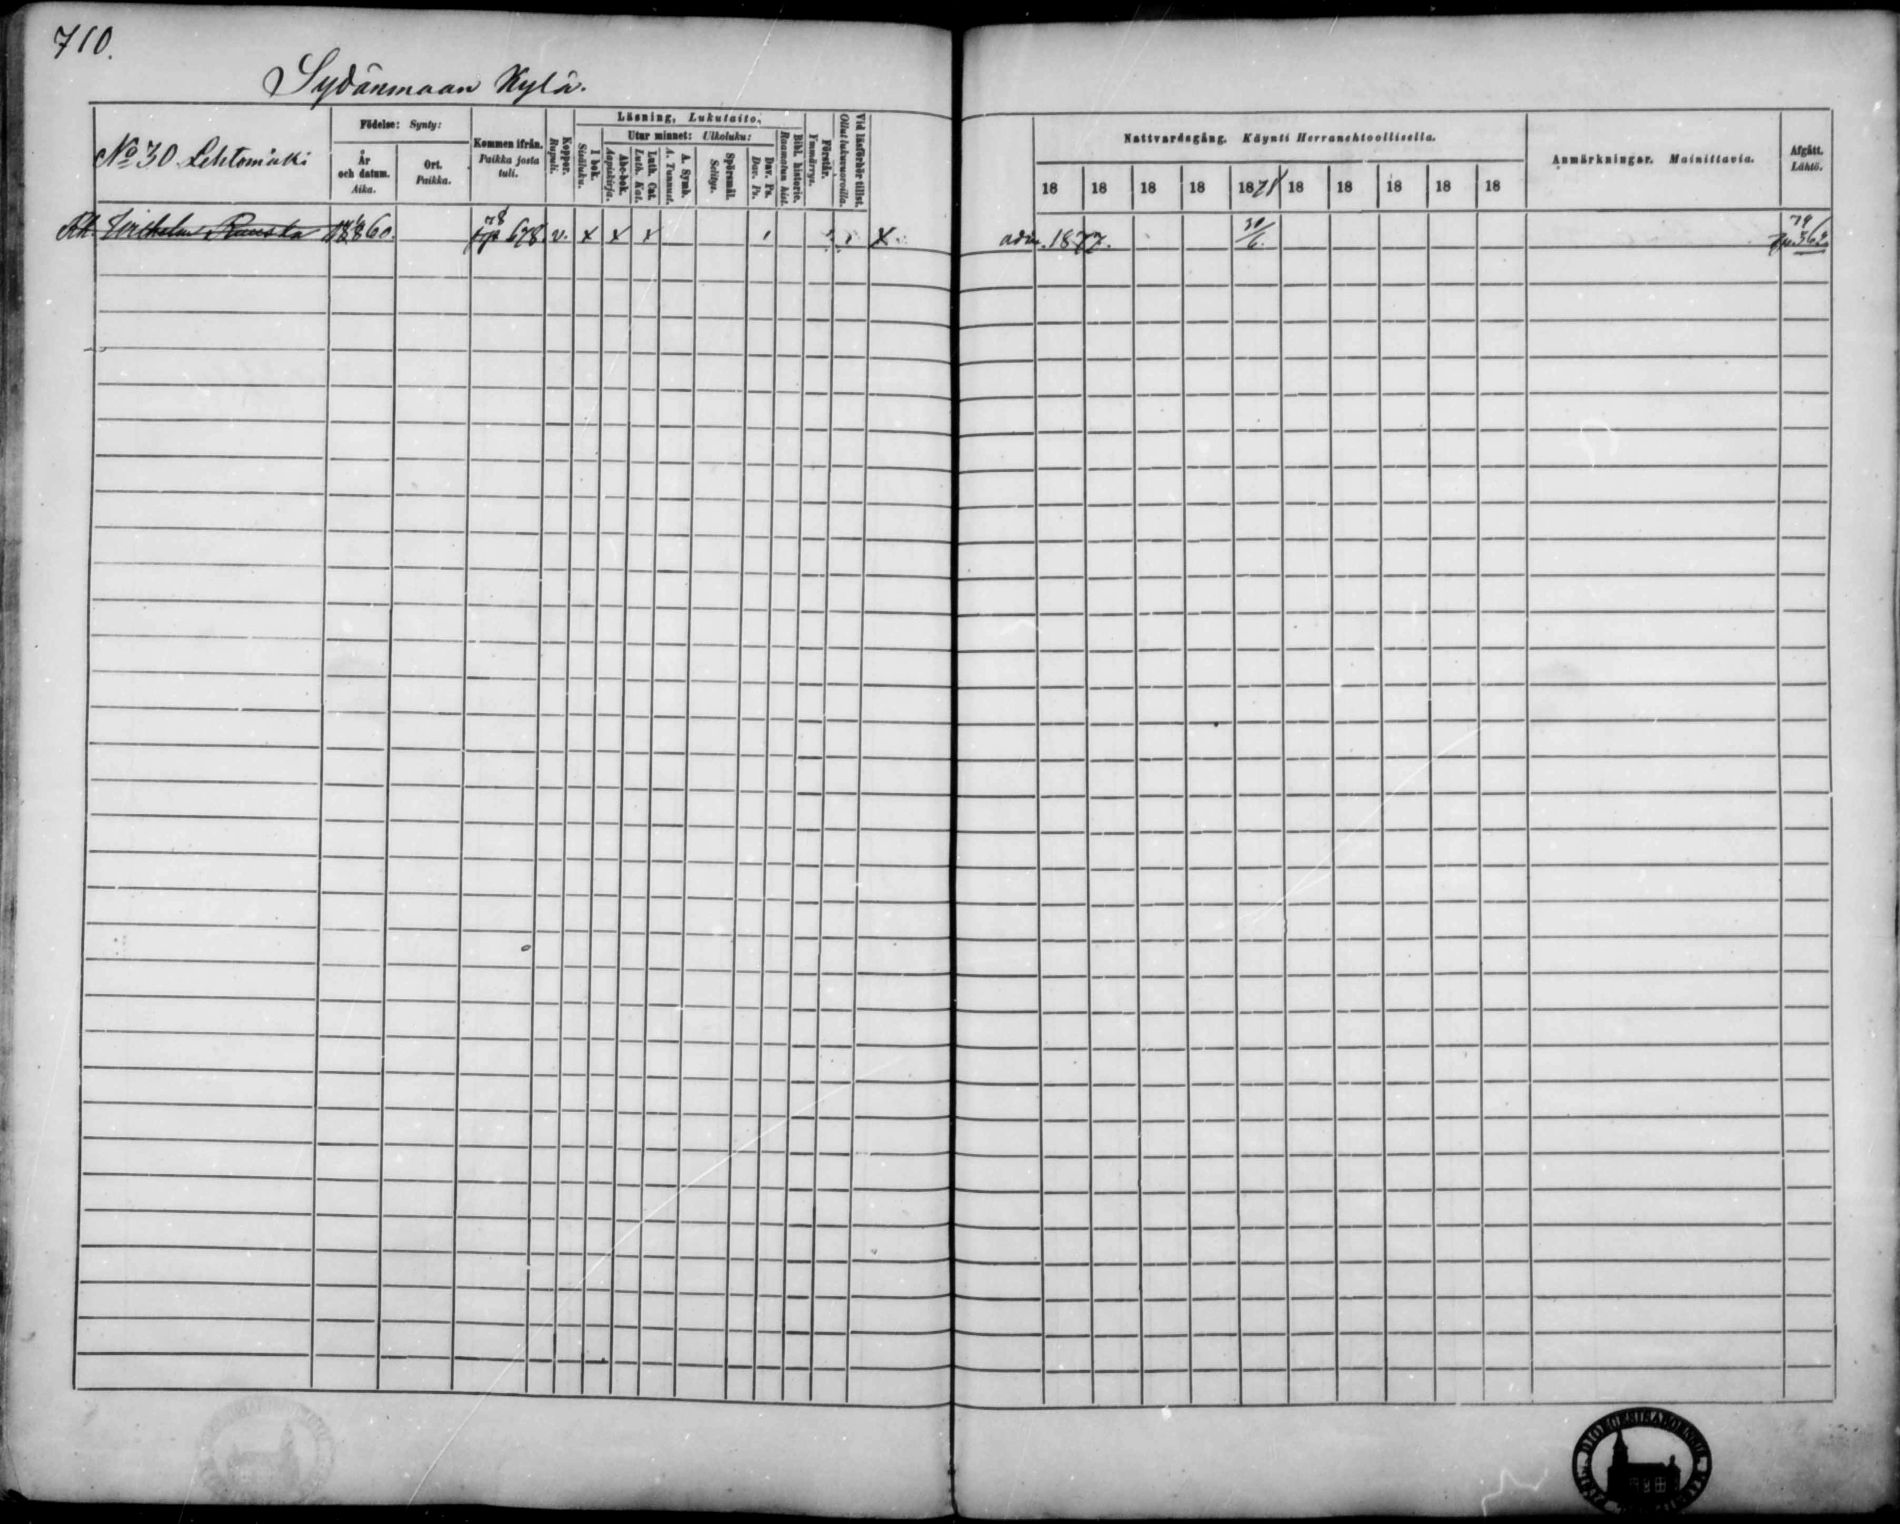 710.
Sydänmaan Kylä.
No 30 Lehtomäki
Födelse: Synty:
År och datum. Aika.
Ort. Paikka.
Kommen ifrån. Paikka josta tuli.
Koppor. Rupuli.
Läsning, Lukutaito.
I bok. Sisäluku.
Utur minnet: Ulkoluku:
Abc-bok. Aapiskirja.
Luth. Cat. Luth. Kat.
A. Symb. A. Tunnust.
Spörsmål. Selitys.
Dav. Ps. Dav. Ps.
Bibl. historie. Raamatun hist.
Förstår. Ymmärrys.
Vid läsförhör tillst. Ollut lukuvuoroilla.
Nattvardsgång. Käynti Herranehtoollisella.
18 18 18 18 1878 18 18 18 18 18
Anmärkningar. Mainittavia.
Afgått. Lähtö.
60. 678. v. x x x x
adm. 1877. 30/6.
79